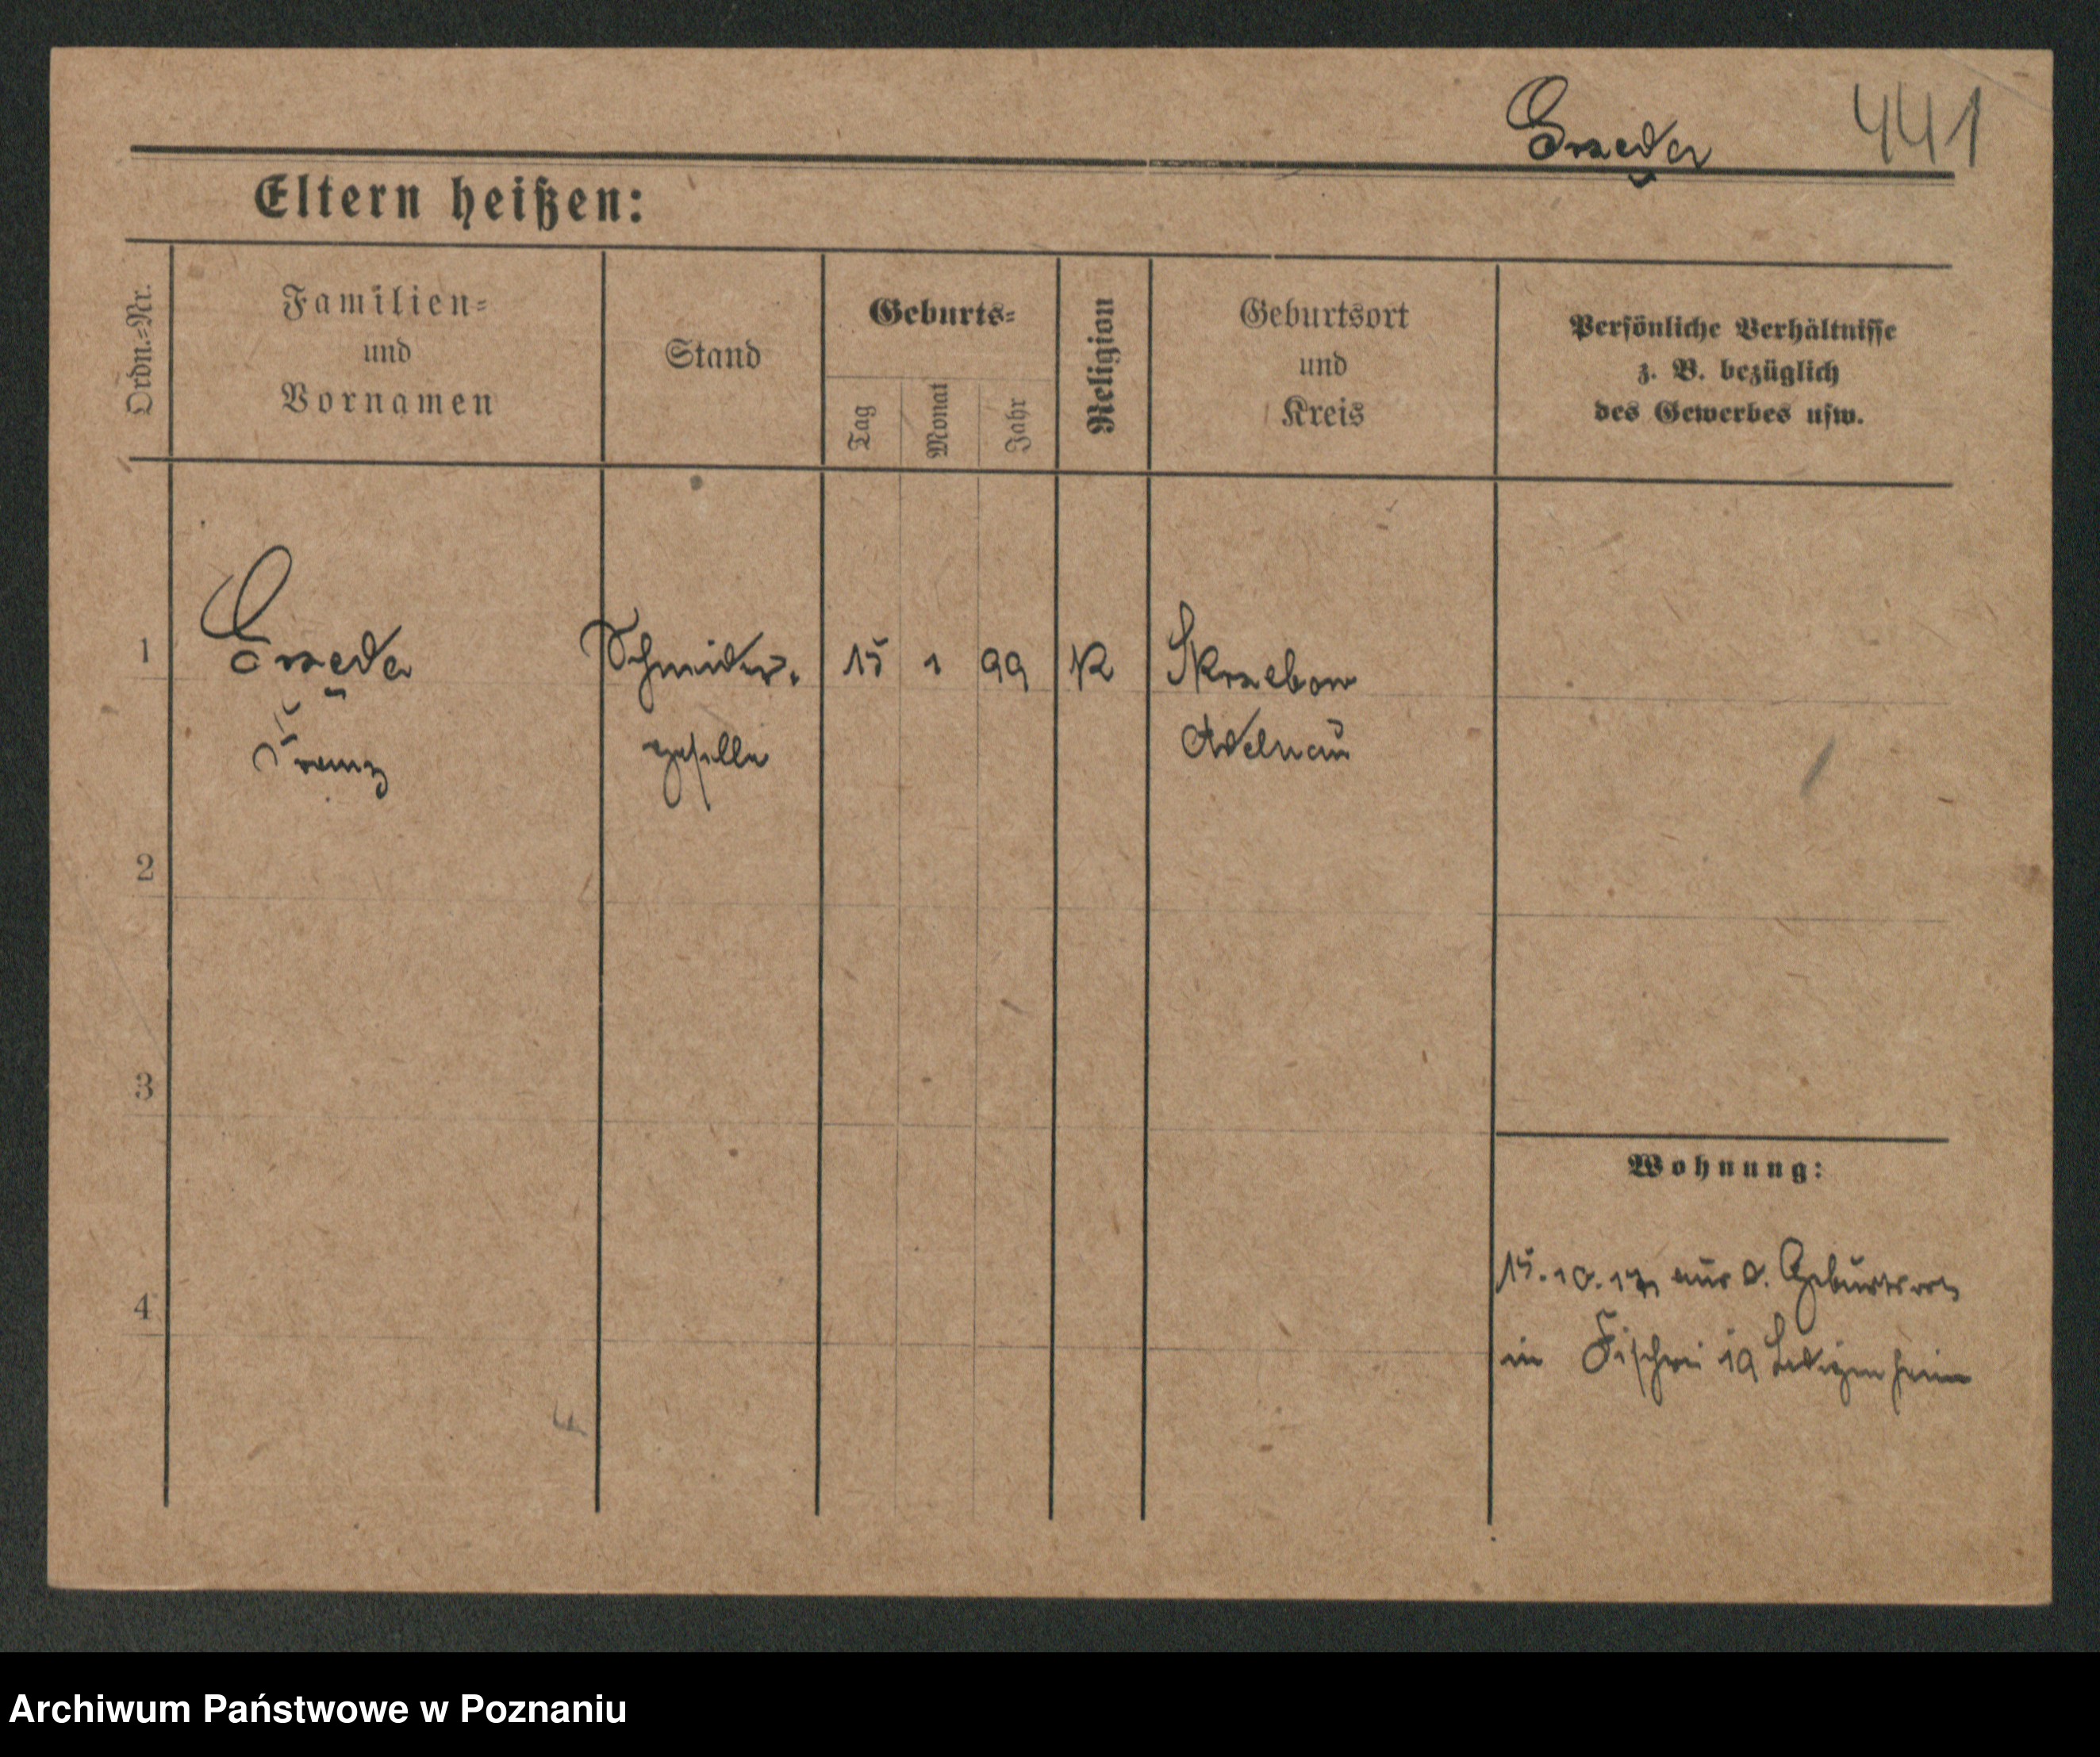 Grzęda 441
Eltern heißen:
Ordn.-Nr.
Familien-
und
Vornamen
Stand
Geburts-
Tag
Monat
Jahr
Religion
Geburtsort
und
Kreis
Persönliche Verhältnisse
z. B. bezüglich
des Gewerbes usw.
1 Grzęda Schneider- 15 1 99 K Skrzebow
Franz geselle Adelnau
2
3
Wohnung:
15.10.17 aus d. Geburtsort
4
in Fischerei 19 Ledigenheim
Archiwum Państwowe w Poznaniu